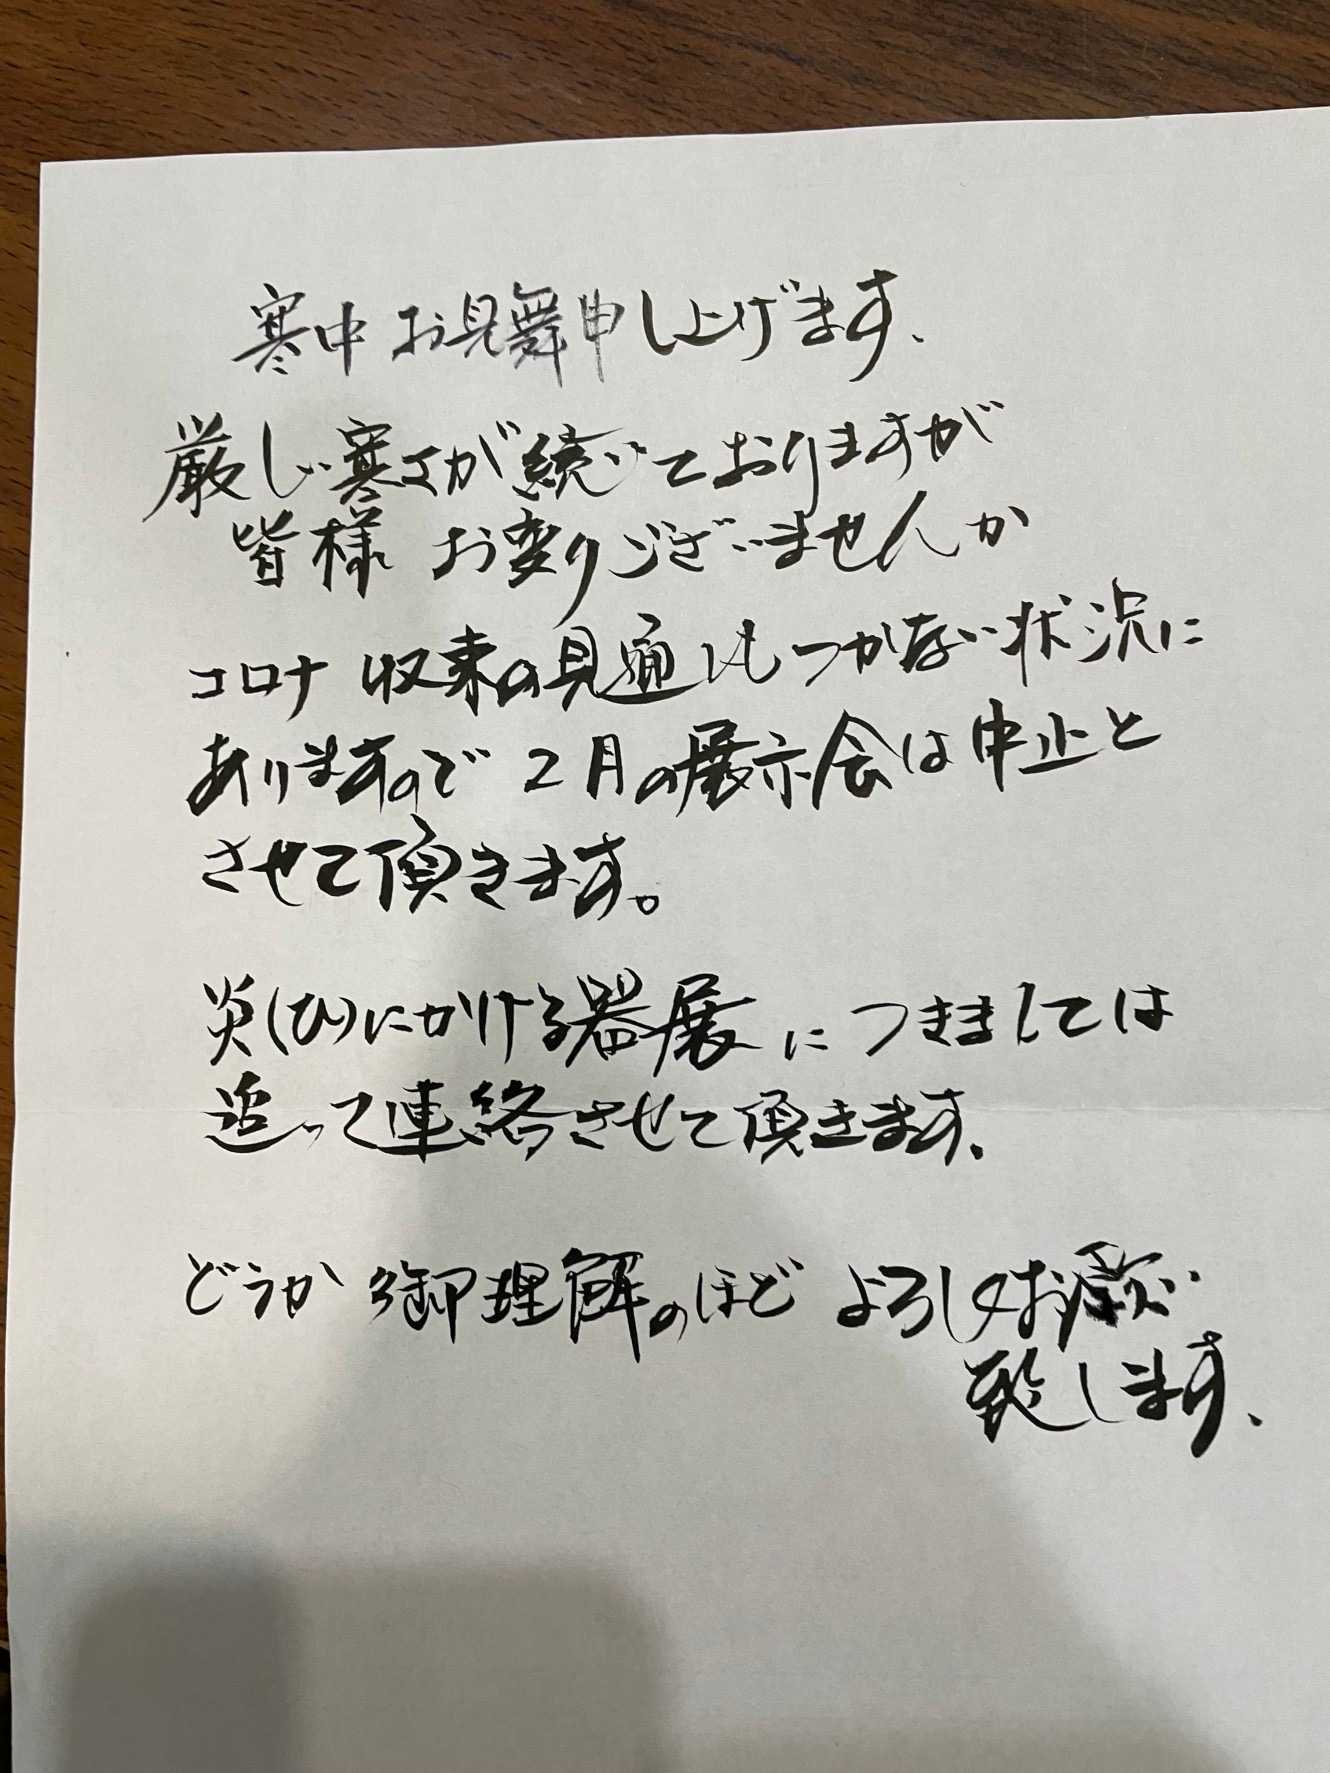 寒中お見舞申し上げます、
厳しい寒さが続いておりますが
皆様 お変りございませんか
コロナ 収束の見通しもつかない状況に
ありますので 2月の展示会は中止と
させて頂きます。
炎(ひ)にかける器展につきましては
追って連絡させて頂きます、
どうか 御理解のほど よろしくお願い
致します、